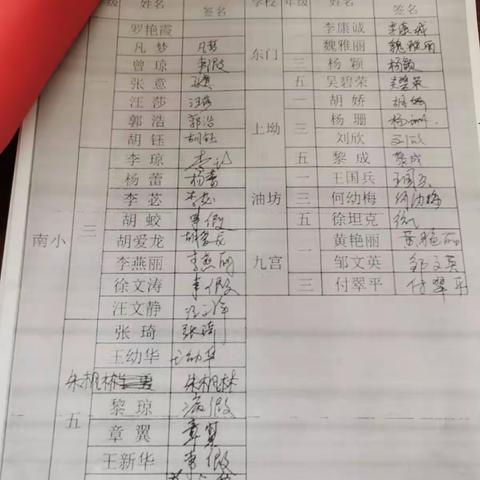 级 签名 学校 年级 姓名 签名
罗艳霞 李康诚 李康诚
凡梦 凡梦 东门 魏雅丽 魏雅丽
曾琼 事假 三 杨颖 杨颖
张意 张意 五 吴碧荣 吴碧荣
汪莎 汪莎 一 胡娇 胡娇
郭浩 郭浩 上坳 三 杨珊 杨珊
胡钰 胡钰 刘欣 刘欣
李琼 五 黎成 黎成
杨蕾 杨蕾 一 王国兵 王国兵
李苾 李苾 油坊 三 何幼梅 何幼梅
南小 三 胡蛟 事假 五 徐坦克
胡爱龙 胡爱龙 一 黄艳丽 黄艳丽
李燕丽 李燕丽 九宫 邹文英 邹文英
徐文涛 事假 三 付翠平 付翠平
汪文静 汪文静
张琦 张琦
王幼华 王幼华
朱机林 朱机林
黎琼 病假
五 章翼 章翼
王新华 事假